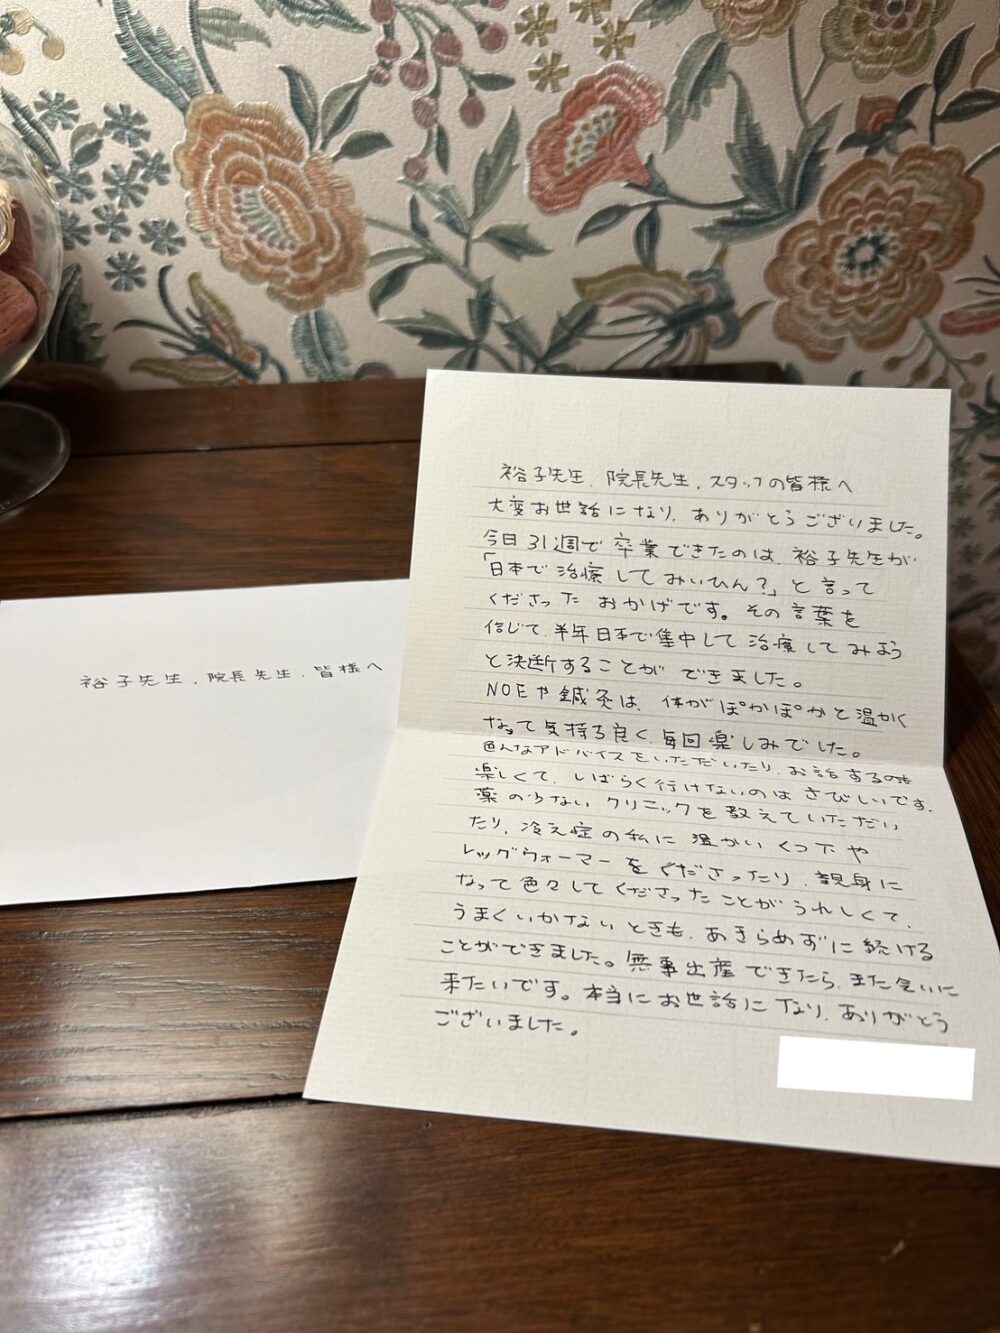 裕子先生、院長先生、皆様へ
裕子先生、院長先生、スタッフの皆様へ
大変お世話になり、ありがとうございました。
今日31週で卒業できたのは、裕子先生が
「日本で治療してみいひん?」と言って
くださったおかげです。その言葉を
信じて、半年日本で集中して治療してみよう
と決断することができました。
NOEや鍼灸は、体がぽかぽかと温かく
なって気持ち良く、毎回楽しみでした。
色んなアドバイスをいただいたり、お話するのも
楽しくて、しばらく行けないのはさびしいです。
薬の少ないクリニックを教えていただい
たり、冷え症の私に温かいくつ下や
レッグウォーマーをくださったり、親身に
なって色々してくださったことがうれしくて、
うまくいかないときも、あきらめずに続ける
ことができました。無事出産できたら、また会いに
来たいです。本当にお世話になり、ありがとう
ございました。